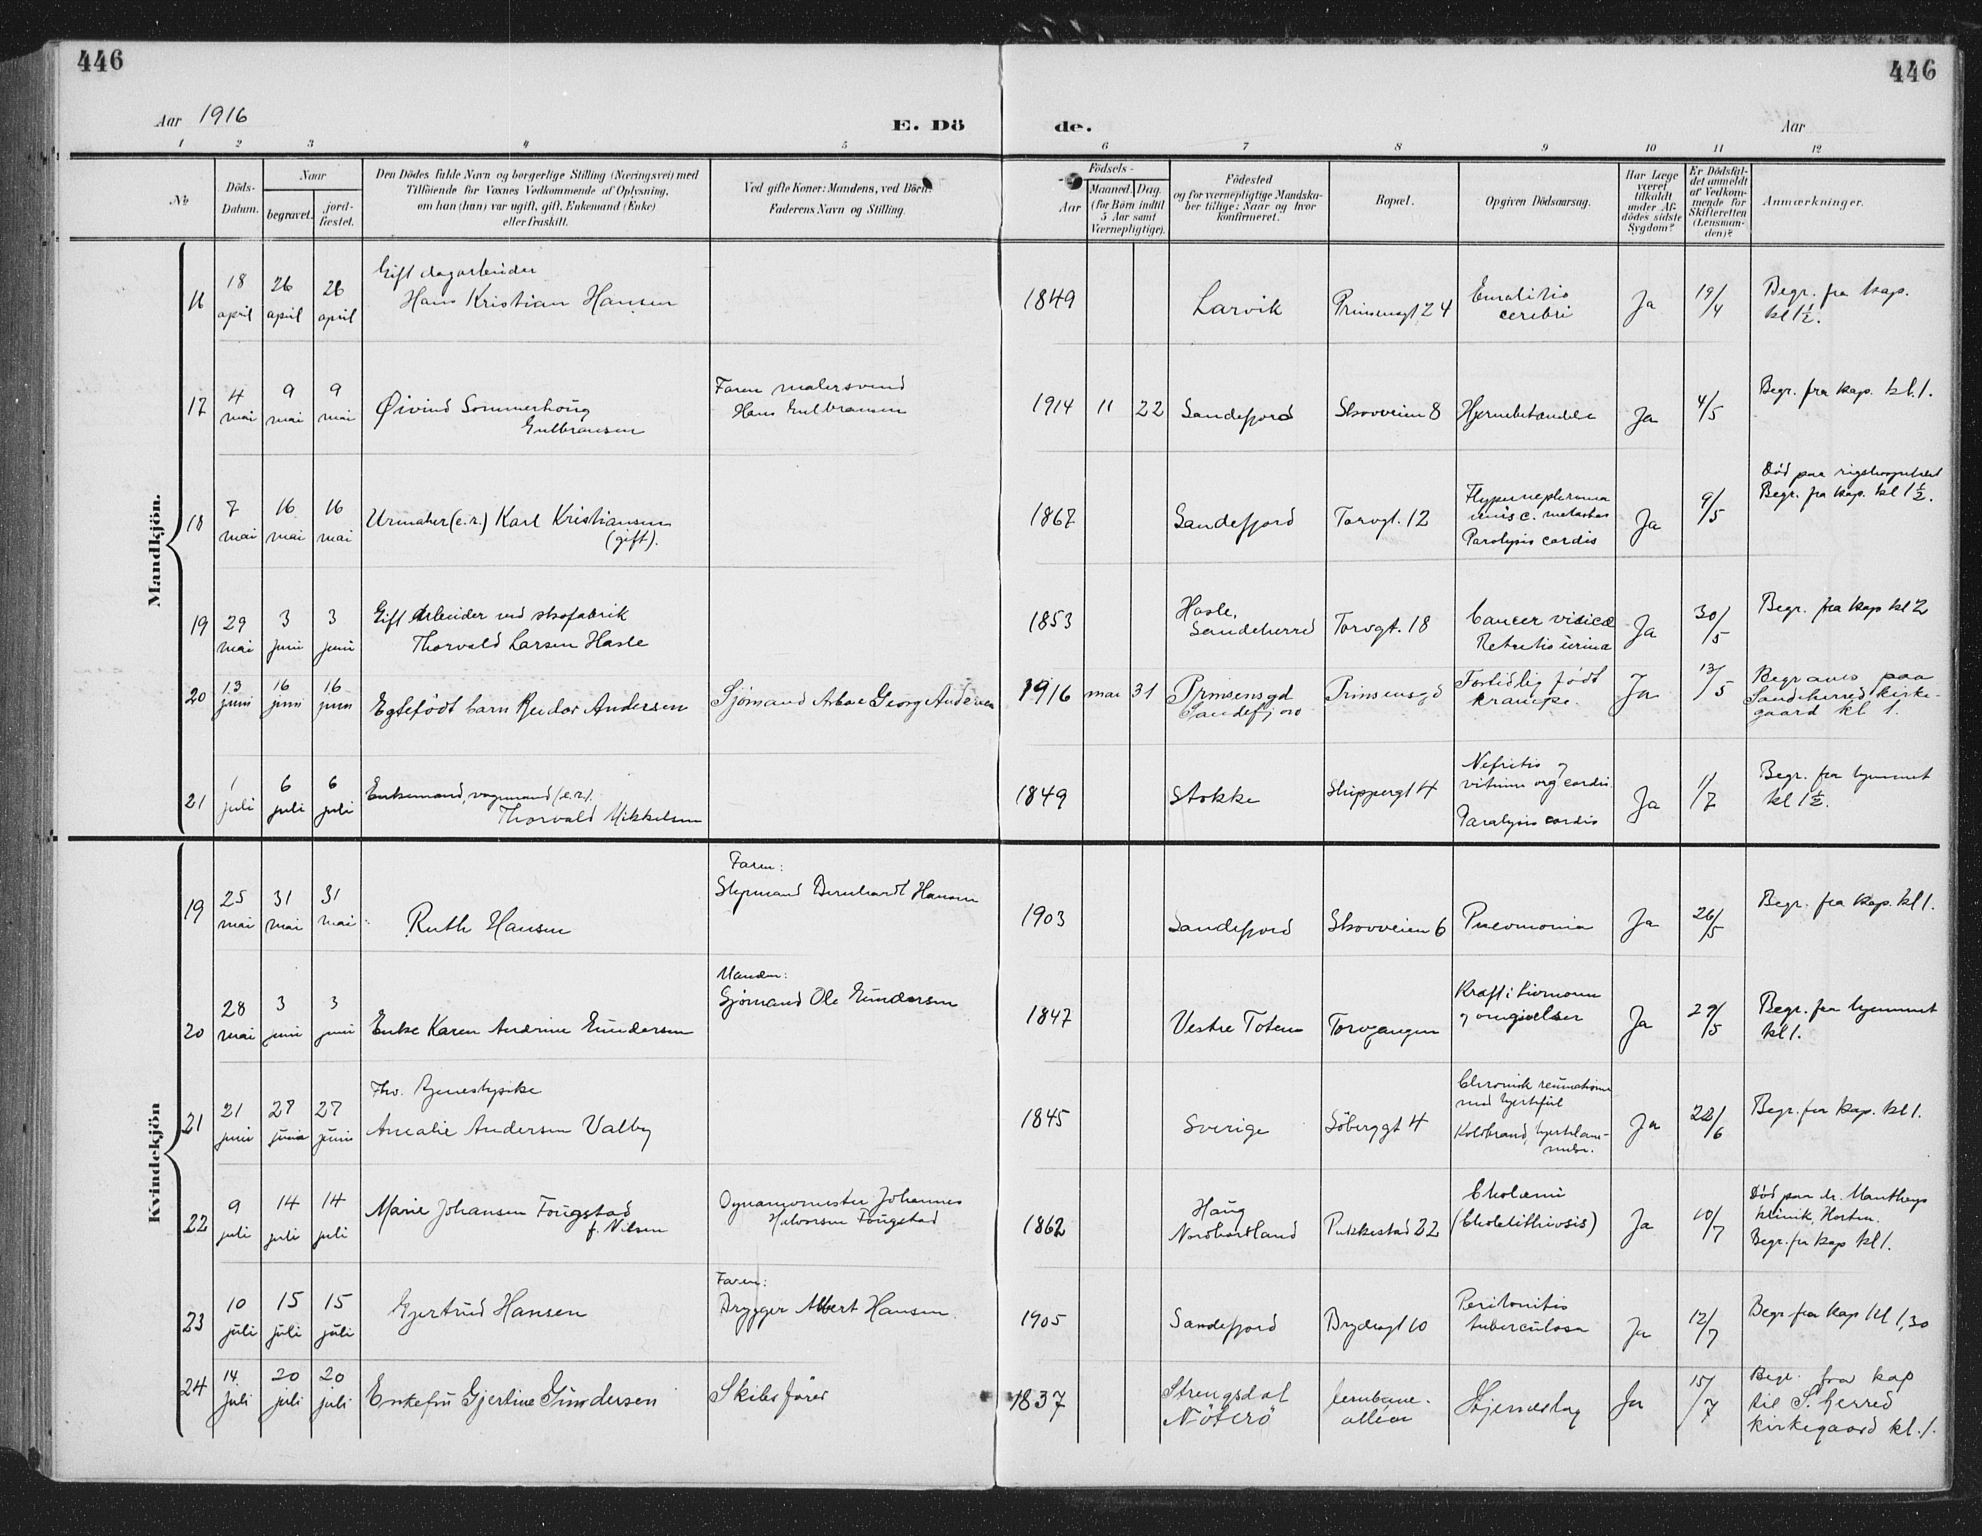 446
446
Aar 1916
E. Dö
de.
Aar
1 2 3 4 5 6 7 8 9 10 11 12
№
Döds-
Datum.
Naar
begravet.
jord-
fæstet.
Den Dödes fulde Navn og borgerlige Stilling (Næringsvei) med
Tilföiende for Voxnes Vedkommende af Oplysning,
om han (hun) var ugift, gift, Enkemand (Enke)
eller fraskilt.
Ved gifte Koner: Mandens, ved Börn:
Faderens Navn og Stilling.
Födsels-
Aar
Maaned. Dag.
(for Börn indtil
5 Aar samt
Værnepligtige).
Födested
og for værnepligtige Mandska-
ber tillige: Naar og hvor
konfirmeret.
Bopæl.
Opgiven Dödsaarsag.
Har Læge
været
tilkaldt
under Af-
dödes sidste
Sygdom?
Er Dödsfal-
det anmeldt
af Vedkom-
mende for
Skifteretten
(Lensman-
den)?
Anmærkninger.
Mandkjön.
16 18 april 26 april 26 april
Gift dagarbeider
Hans Kristian Hansen
1849 Larvik Prinsensgt 24
cerebri
Ja 19/4
Begr. fra kap.
kl 1½.
17 4 mai 9 mai 9 mai
Øivind Sommerhoug
Gulbransen
Faren malersvend
Hans Gulbransen
1914 11 22 Sandefjord Skovveien 8 Hjernebetændelse Ja 4/5
Begr. fra kap. kl. 1.
18 7 mai 16 mai 16 mai
Urmaker (e.r.) Karl Kristiansen
(gift).
1867 Sandefjord Torvgt. 12
Hypernephroma
Paralysis cordis
Ja 9/5
Død paa rigshospitalet
Begr. fra kap. kl 1½.
19 29 mai 3 juni 3 juni
Gift Arbeider ved skofabrik
Thorvald Larsen Hasle
1853
Hasle,
Sandeherred
Torvgt. 18
Cancer
Ja 30/5
Begr. fra kap kl 2
20 13 juni 16 juni 16 juni
Egtefødt barn Reidar Andersen
Sjømand George Andersen
1916 mai 31
Prinsensgd
Sandefjord
Prinsensgd
Fortidlig født
krampe.
Ja 13/5
Begraves paa
Sandeherred kirke-
gaard kl 1.
21 1 juli 6 juli 6 juli
Enkemand, vognmand (e.r.).
Thorvald Mikkelsen
1849 Stokke Skippergt 4
Nefritis og
vitium org cordis.
Paralysis cordis
Ja 1/7
Begr. fra hjemmet
kl 1½.
Kvindekjön
19 25 mai 31 mai 31 mai
Ruth Hansen
Faren:
Styrmand Bernhardt Hansen
1903 Sandefjord Skovveien 6 Pneomonia Ja 26/5
Begr. fra kap. kl 1.
20 28 mai 3 juni 3 juni
Enke Karen Andrine Gundersen
Manden:
Sjømand Ole Gundersen
1847 Vestre Toten Torvgangen
Kræft i livmoren
og omgivelser
Ja 29/5
Begr. fra hjemmet
kl 1.
21 21 juni 27 juni 27 juni
Fhv. tjenestepike
Amalie Andersen Valby
1845 Sverige Söberggt 4
Chronisk reumatisme
med hjertefeil
Koldbrand, hjertelam-
melse.
Ja 22/6
Begr. fra kap. kl 1.
22 9 juli 14 juli 14 juli
Marie Johansen Fougstad
f. Nilsen
Dynamomester Johannes
Halvorsen Fougstad
1862
Haug
Nordhordland
Pukkestad 22
Cholæmi
(Cholelithiosis)
Ja 10/7
Død paa dr. Mantheys
klinik, Horten.
Begr. fra kap kl 1.
23 10 juli 15 juli 15 juli
Gjertrud Hansen
Faren:
Brygger Albert Hansen
1905 Sandefjord Brydesgt 10
Peritonitis
tuberculosa
Ja 12/7
Begr fra kap kl 1,30
24 14 juli 20 juli 20 juli
Enkefru Gjertine Gundersen
Skibsfører
1837
Strengsdal
Nöterö
Jernbane-
alléen
Hjerneslag
Ja 15/7
Begr. fra kap
til S. herred
kirkegaard kl. 1.